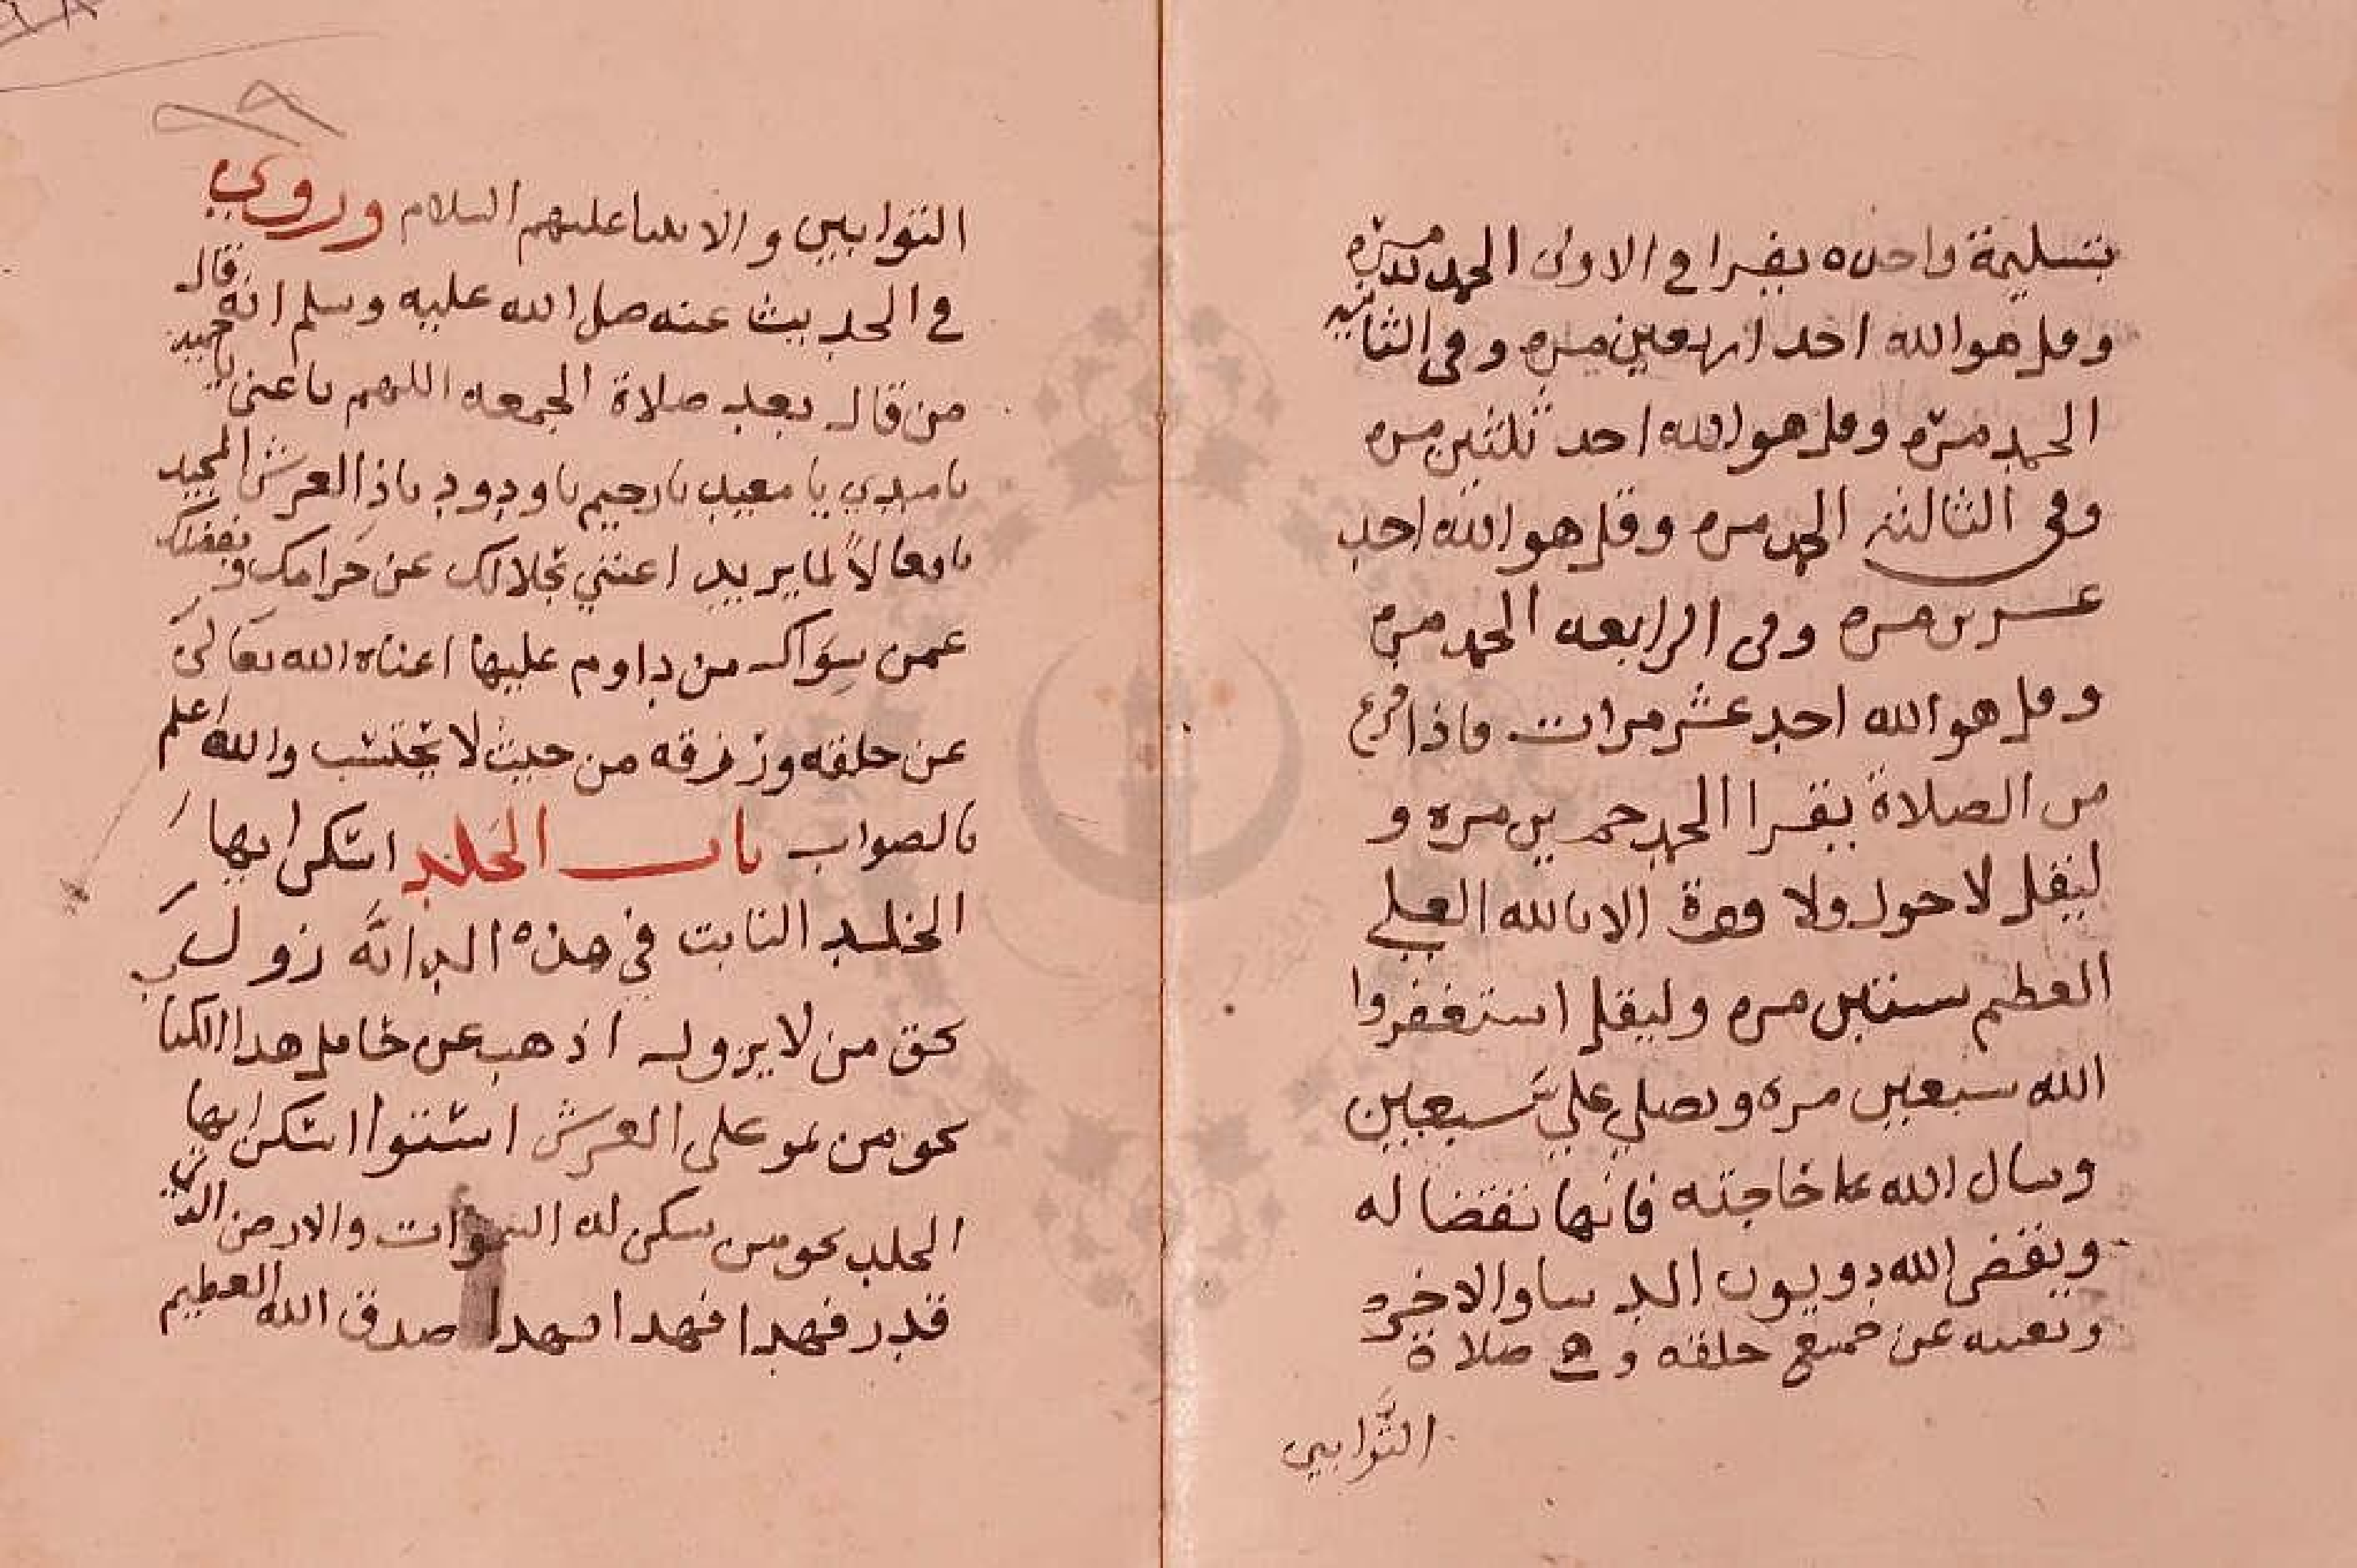 بتسليمة واحده يقرا في الاولى الحمد مرة
وقل هو الله احد اربعين مره وفى الثانيه
الحمد مرة وقل هو الله احد ثلثين مره
وفى الثالثه الحمد مره وقل هو الله احد
عشرين مره وفى الرابعه الحمد مره
وقل هو الله احد عشر مرات فاذا فرغ
من الصلاة يقرا الحمد خمسين مره و
ليقل لا حول ولا قوة الا بالله العلي
العظيم ستين مره وليقل استغفروا
الله سبعين مره ويصلي علي سبعين
وسال الله حاجته فانها تقضا له
ويقضى الله ديون الدنيا والاخره
ويغنيه عن جميع خلقه وهي صلاة
التوابين
التوابين والانبيا عليهم السلام وروي
في الحديث عنه صلى الله عليه وسلم انه قال
من قال بعد صلاة الجمعه اللهم ياغنى يا حميد
يا مبدي يا معيد يا رحيم يا ودود ياذا العرش المجيد
يا فعالاً لما يريد اغنني بحلالك عن حرامك وبفضلك
عمن سواك من داوم عليها اغناه الله تعالى
عن خلقه ورزقه من حيث لا يحتسب والله اعلم
بالصواب باب الخلد اسكن ايها
الخلد النابت في هذه الدابه زول
بحق من لا يزول اذهب عن حامل هذا الكتاب
بحق من هو على العرش استوا اسكن ايها
الخلد بحق من سكن له السموات والارض
قدر فهدا فهدا فهدا صدق الله العظيم